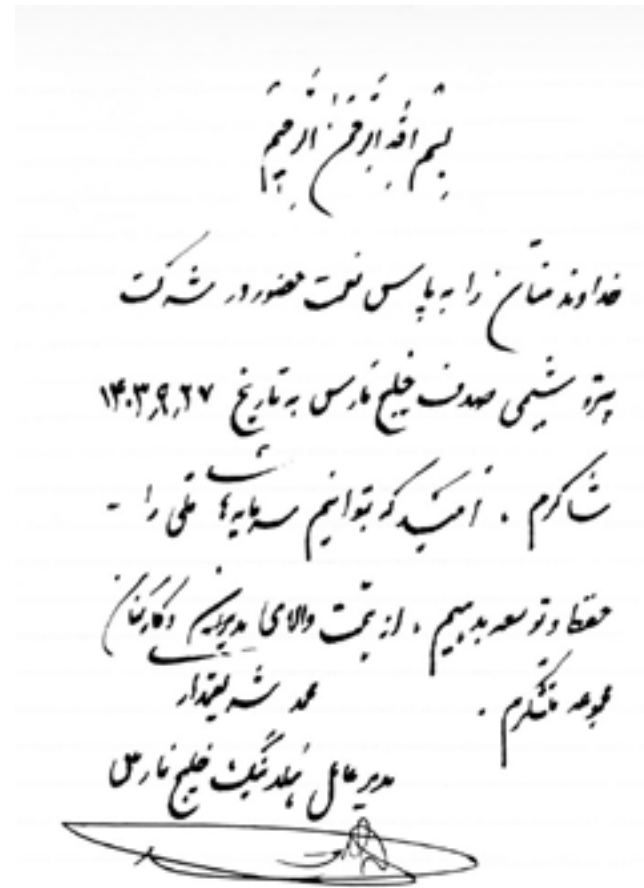 بِسْمِ اللهِ الرَّحْمنِ الرَّحِيمِ
خداوند منّان را به پاس نعمت حضور در شرکت
پتروشیمی صدف خلیج فارس به تاریخ ۱۴۰۳,۹,۲۷
شاکرم . امید که بتوانیم سرمایه‌های ملی را -
حفظ و توسعه بدهیم . از همّت والای مدیران و کارکنان
مجموعه متشکّرم .
محمد شریعتمدار
مدیرعامل هلدینگ خلیج فارس